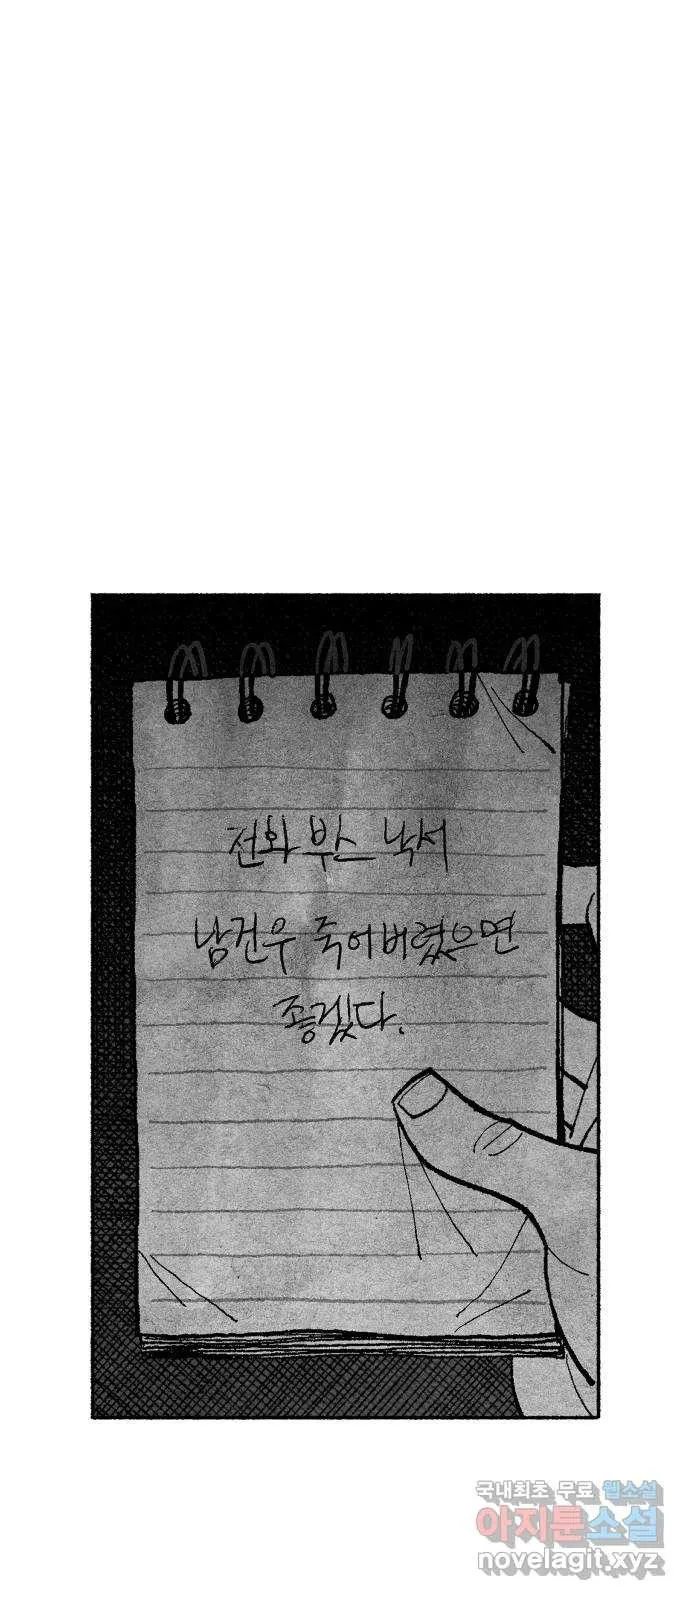 전화 부스 낙서
남건우 죽어버렸으면
좋겠다.
국내최초 무료 웹소설
아지툰소설
novelagit.xyz